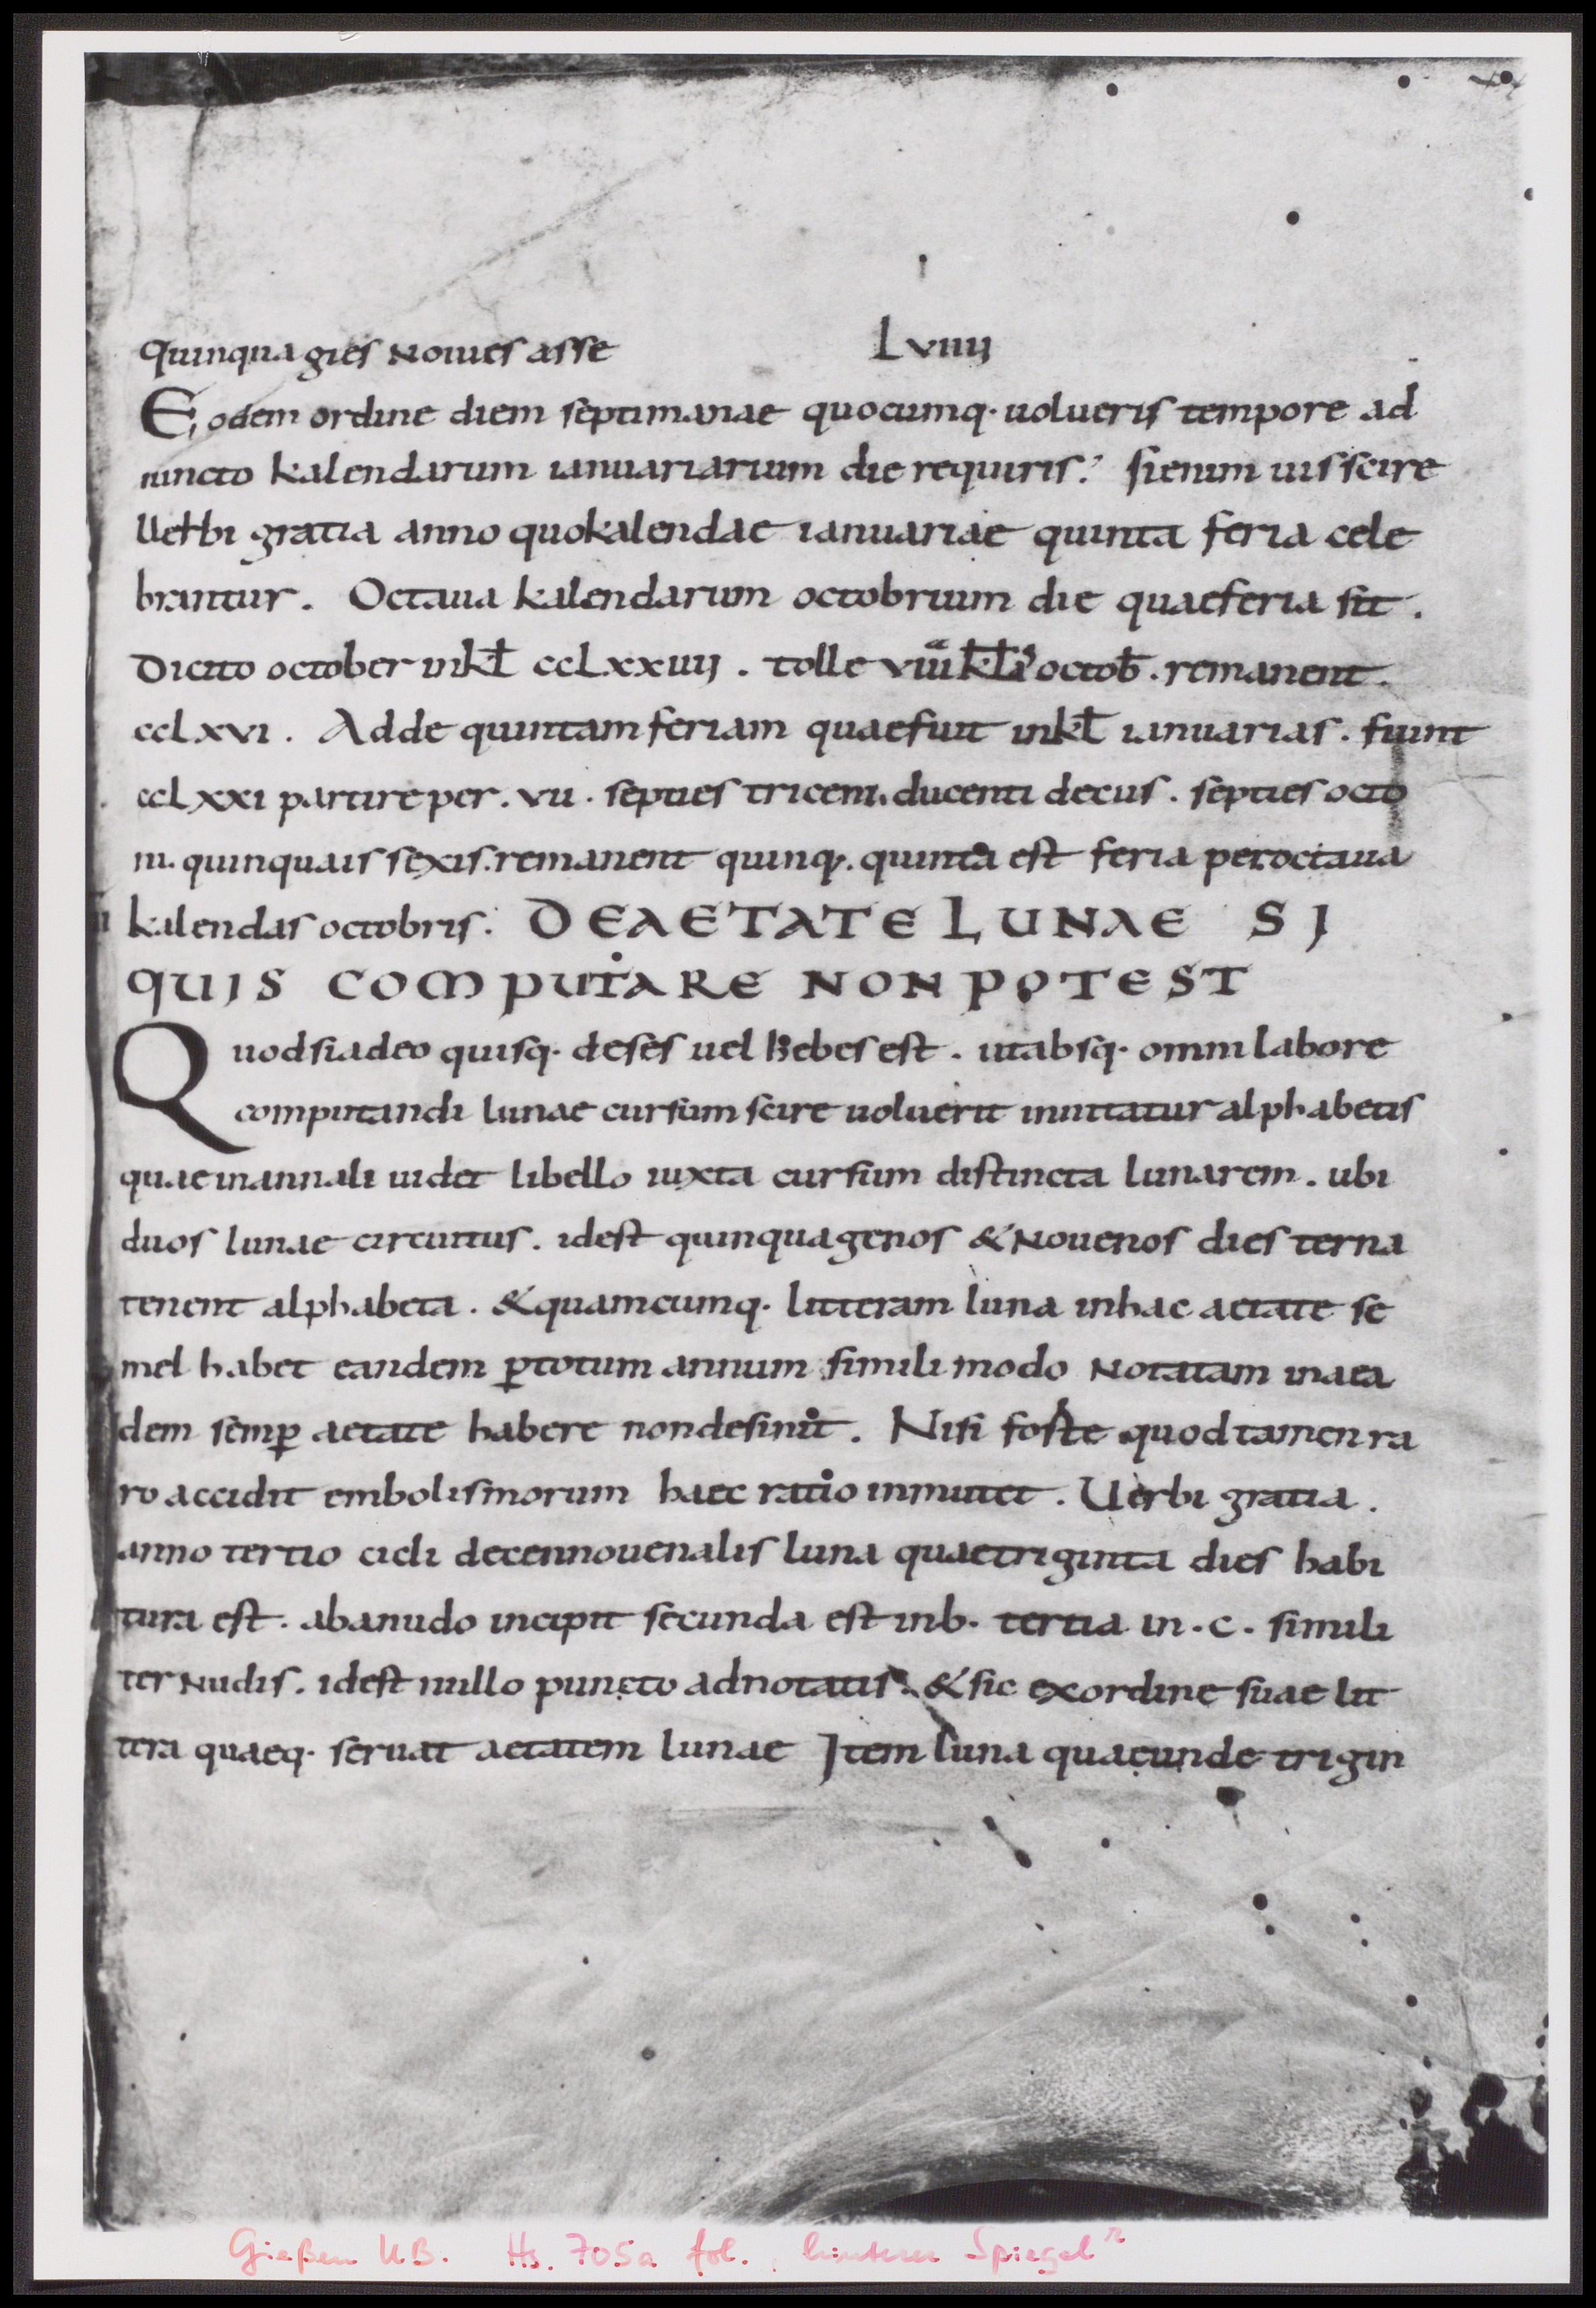 quinquagies Nouies asse LVIIII
Eodem ordine diem septimanae quocumq· uolueris tempore ad
iuncto kalendarum ianuariarum die requiris. si enim uis scire
Uerbi gratia anno quo kalendae ianuariae quinta feria cele
brantur. Octaua kalendarum octobrium die quae feria sit.
Dicito october in kł ccLxxiiij. tolle octob. remanent.
ccLxvi. Adde quintam feriam quae fuit in kł ianuarias. fiunt
ccLxxi partire per. vii. septies triceni. ducenti decus. septies octo
ni. quinquais sexis. remanent quinq;. quinta est feria per octaua
kalendas octobris. DE AETATE LUNAE SI
QUIS COMPUTARE NON POTEST
Quod si adeo quisq· deses uel hebes est. ut absq· omni labore
computandi lunae cursum scire uoluerit innitatur alphabetis
quae in annali uidet libello iuxta cursum distincta lunarem. ubi
duos lunae circuitus. id est quinquagenos & Nouenos dies terna
tenent alphabeta. & quamcumq· litteram luna in hac aetate se
mel habet eandem ꝑ totum annum simili modo Notatam in aea
dem semꝑ aetate habere non desinit. Nisi foste quod tamen ra
ro accidit embolismorum haec ratio inmutet. Uerbi gratia.
anno tertio cicli decennouenalis luna quae triginta dies habi
tura est. ab a nudo incipit secunda est in b. tertia in. c. simili
ter Nudis. id est nullo puncto adnotatis. & sic ex ordine suae lit
tera quaeq· seruat aetatem lunae Item luna quae unde trigin
Gießen UB. Hs. 705a fol. hinterer Spiegel r